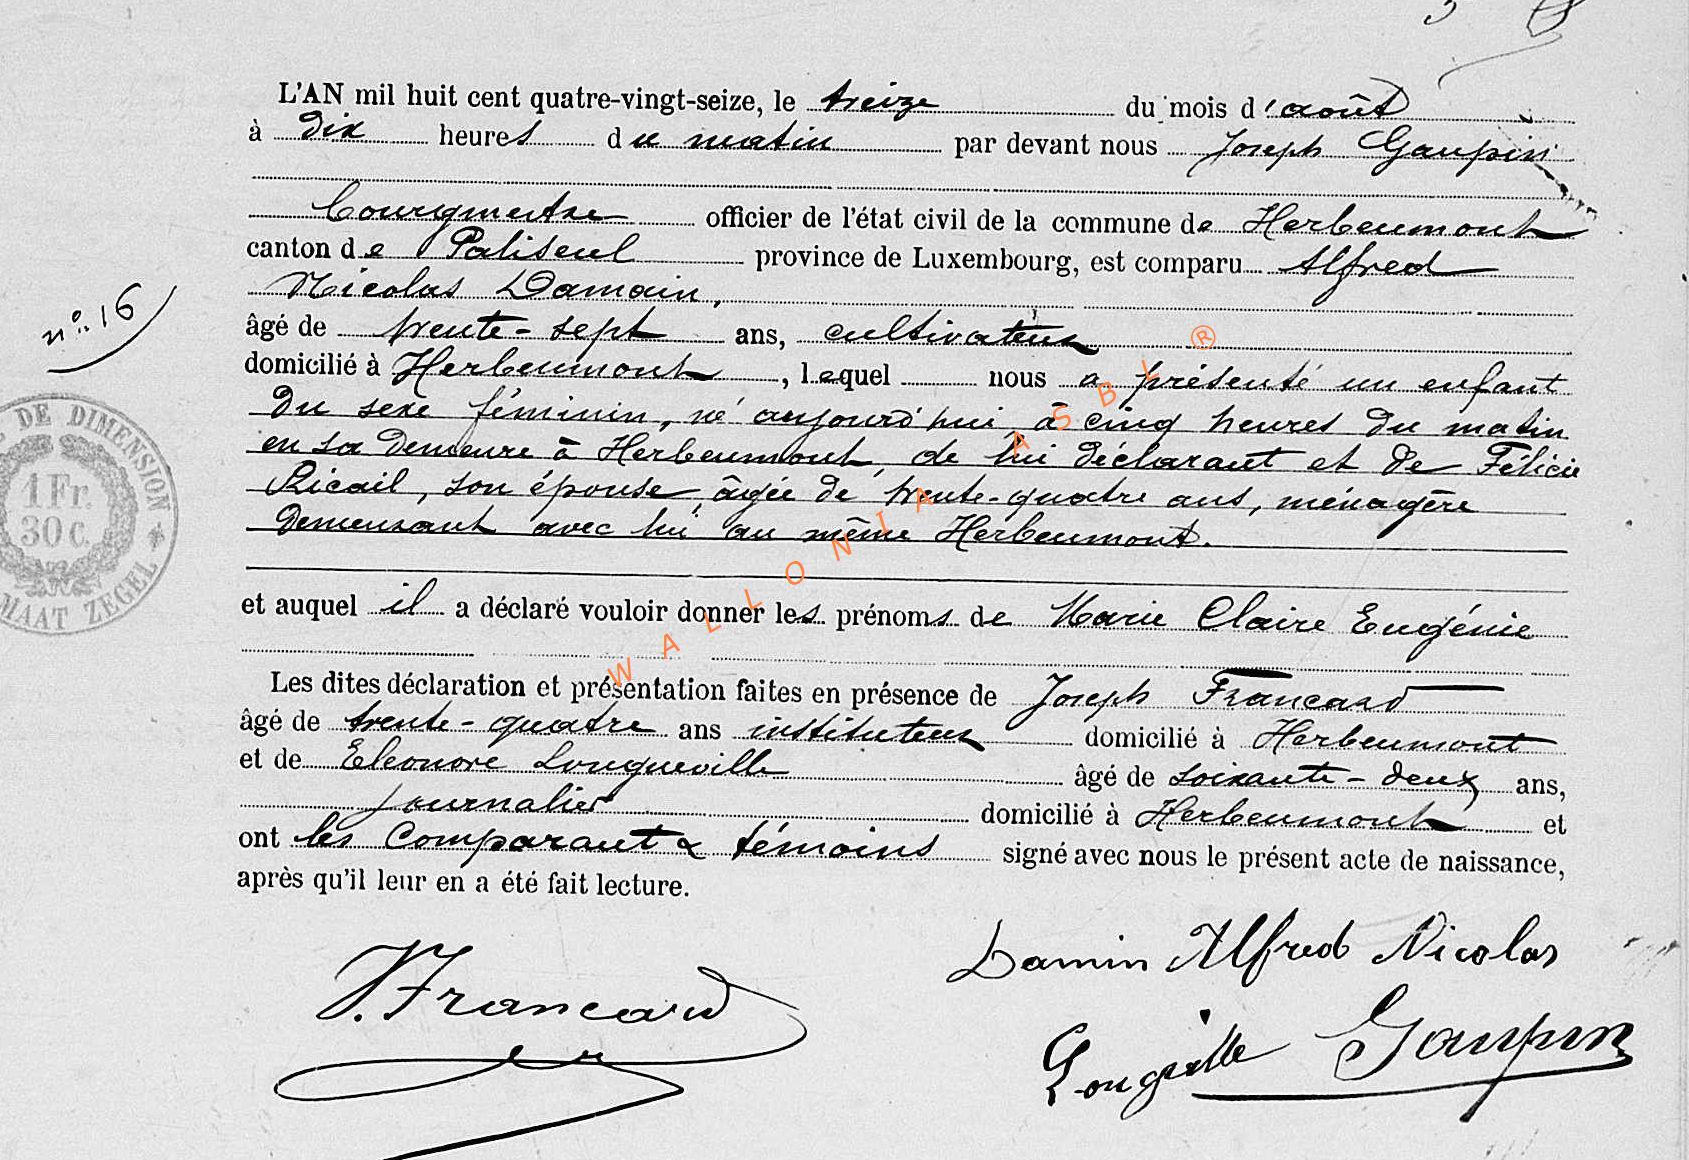 L'AN mil huit cent quatre-vingt-seize, le treize du mois d'août
à dix heures du matin par devant nous Joseph Gaupin
bourgmestre officier de l'état civil de la commune de Herbeumont
canton de Paliseul province de Luxembourg, est comparu Alfred
Nicolas Damain,
n° 16
âgé de trente-sept ans, cultivateur
domicilié à Herbeumont, lequel nous a présenté un enfant
du sexe féminin, né aujourd'hui à cinq heures du matin
en sa demeure à Herbeumont, de lui déclarant et de Félicie
Ricail, son épouse, âgée de trente-quatre ans, ménagère
demeurant avec lui au même Herbeumont.
DE DIMENSION
1 Fr.
30 C.
MAAT ZEGEL
et auquel il a déclaré vouloir donner les prénoms de Marie Claire Eugénie
Les dites déclaration et présentation faites en présence de Joseph Francard
âgé de trente-quatre ans instituteur domicilié à Herbeumont
et de Eleonore Longueville âgé de soixante-deux ans,
journalier domicilié à Herbeumont et
ont les comparant & témoins signé avec nous le présent acte de naissance,
après qu'il leur en a été fait lecture.
WALLONIA ASBL ®
Damin Alfred Nicolas
J. Francard
Longville Gaupin